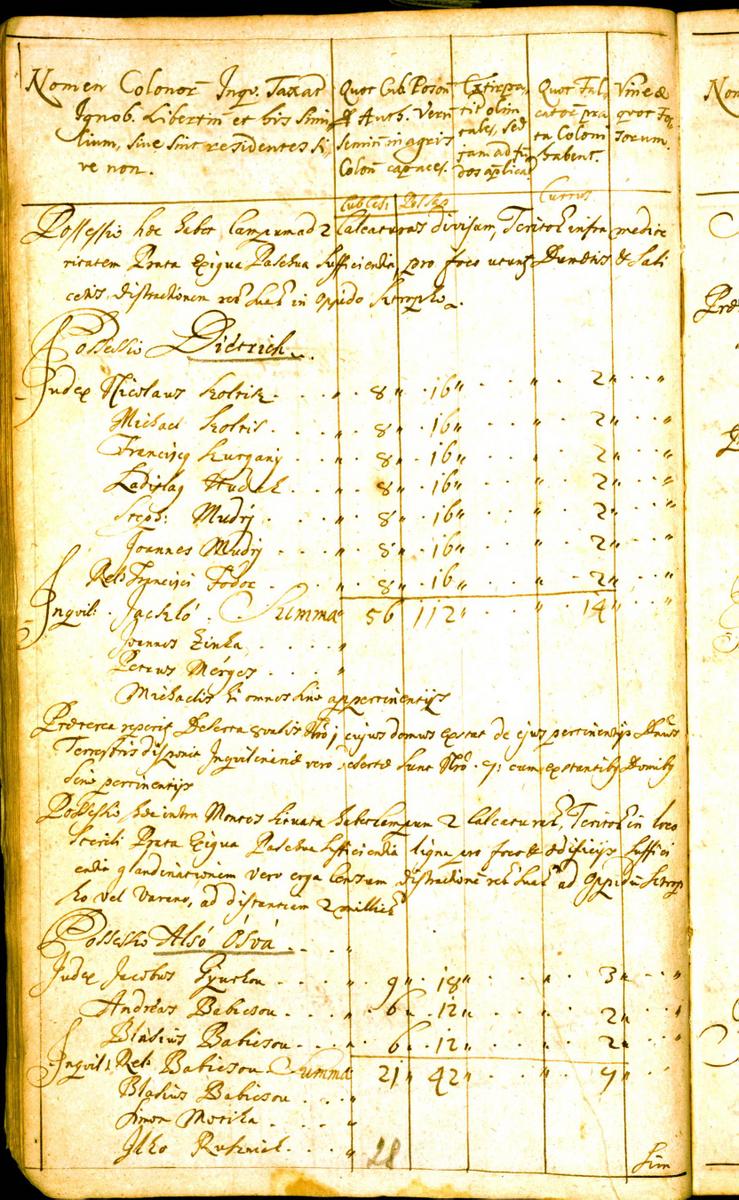 Nomen Colonor Inqu. Taxat
Ignob. Libertin et his Simi
lium, sive sint residentes si
ve non.
Quot Cub. Poson
Auth. Veri
Seminu in agris
Colon capaces.
Extirpa
tit olim
tales, sed
jam ad fu
dos aplica
Quot Fal
cator pra
ta Coloni
habent.
Vineæ
quot Fos
sorum.
Cub Cesi Pos Sep
Currus
Possessio hæc habet Campum ad 2 Calcaturas divisum, Teritor infra medioc
ritatem Prata Exigua Pascua sufficientia, pro foco utunt Dumetis & Sali
cetis, distractionem rer suar in oppido Stropko.
Possessio Dietrich.
Judex Nicolaus Koltik. " 8 " 16 " " 2 " "
Michael Koltis. " 8 " 16 " " 2 " "
Francisc Kurgany " 8 " 16 " " 2 " "
Ladislag Hudak. " 8 " 16 " " 2 " "
Steph: Mudry " 8 " 16 " " 2 " "
Joannes Mudry " 8 " 16 " " 2 " "
Rel: Francisci Fodor " 8 " 16 " " 2 " "
Inquil: Jackló Summa " 56 112 " " 14 " "
Joannes Zinka "
Petrus Merges "
Michaelis omnes sine appertinentijs
Præterea reperit Deserta 1 cujus domus exstat de ejus pertinentijs Dnus
Terrestris disponit Inquilinaria vero desertæ sunt Nro. 9: cum exstantib Domib
sine pertinentijs
Possessio hæc intra Montes situata habet Campum 2 Calcaturar, Teritor in loco
sterili Prata Exigua Pascua sufficientia ligna pro foco & ædificijs suffici
entia glandinationem vero erga Censum distractione rer suar ad Oppidu Strop
ko vel Varano, ad distantiam 2 milliar
Possessio Alsó Ósva "
Judex Jacobus Gyurkon " 9 " 18 " " 3 " "
Andreas Babicsou " 6 " 12 " " 2 " "
Blasius Babicsou " 6 " 12 " " 2 " "
Inquil: Rel: Babicsou Summa 21 " 42 " " 7 "
Blasius Babicsou "
Simon Motika "
Ilko Rusznak "
28
Sum